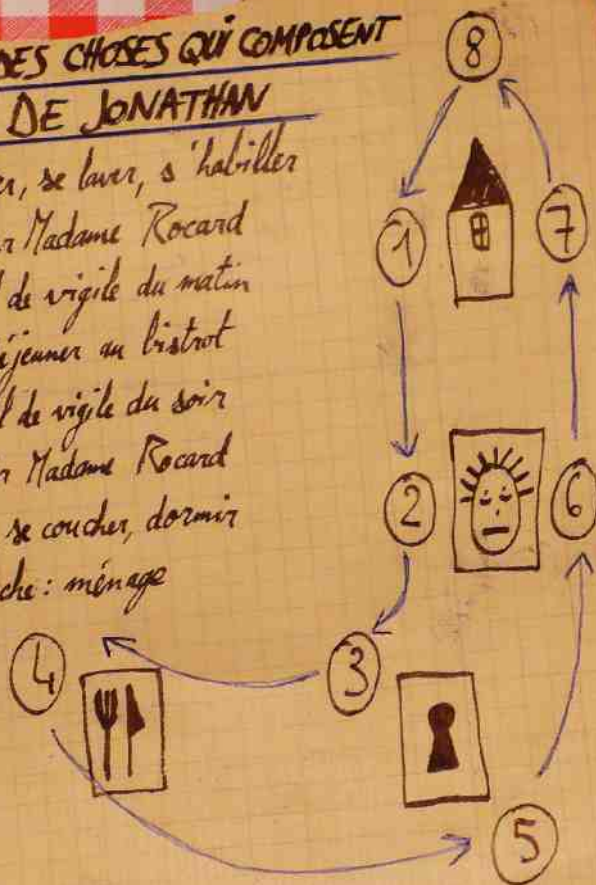 DES CHOSES QUI COMPOSENT
DE JONATHAN
er, se laver, s'habiller
r Madame Rocard
l de vigile du matin
éjeuner au bistrot
l de vigile du soir
r Madame Rocard
se coucher, dormir
che : ménage
8
1
7
2
6
4
3
5